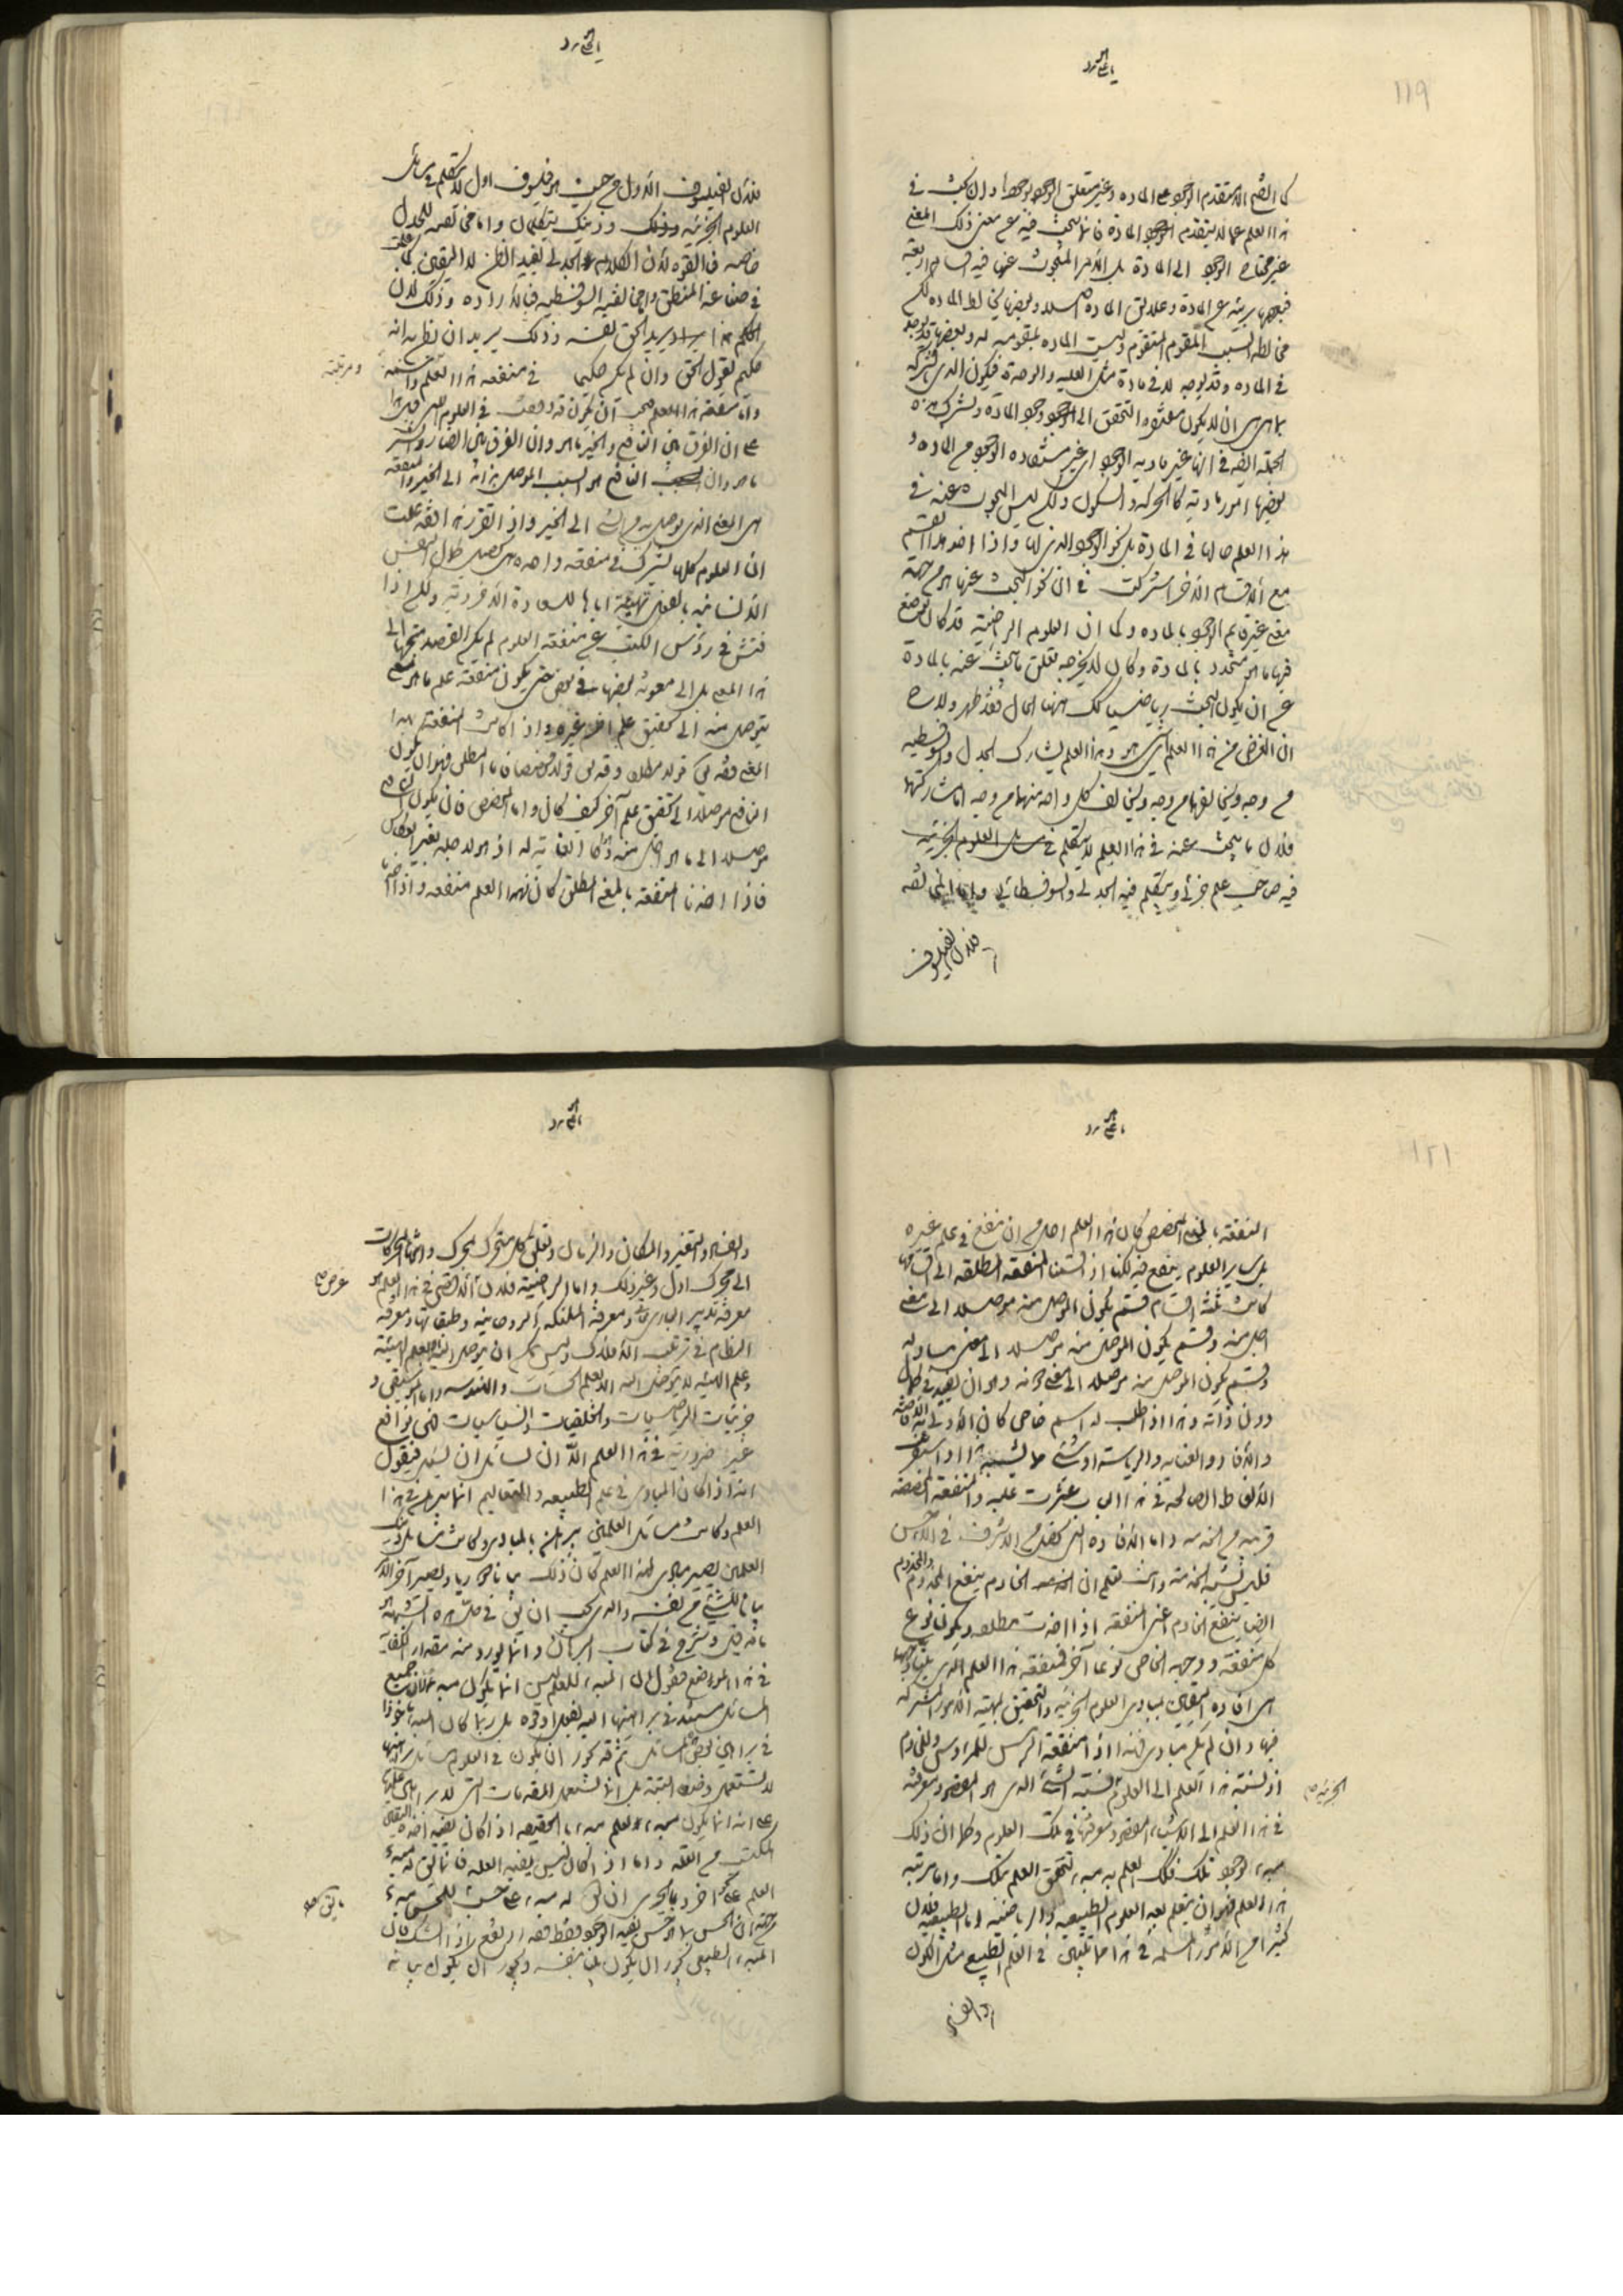 يا محمد
119
كما الضم المتقدم الوجود على المادة وغير متعلق الوجود بوجودها وان بحث في
هذا العلم عما لا يتقدم الوجود المادة فانما يبحث فيه عن معنى ذلك المعنى
غير محتاج الوجود الى المادة بل الامور المبحوث عنها فيه اقسام اربعة
فبعضها برية عن المادة وعلائق المادة اصلا وبعضها يخالط المادة لكن
مخالطة السبب المقوم المتقوم وليست المادة بمقومة له وبعضها قد يوجد
في المادة وقد يوجد لا في مادة مثل العلية والوحدة فيكون الذي تشترك
بما هي هي ان لا يكون مفتقرة التحقق الى وجود المادة وتشترك هذه
الجملة ايضا في انها غير مادية الوجود اي غير مستفادة الوجود من المادة و
بعضها امور مادية كالحركة والسكون ولكن ليس المبحوث عنه في
هذا العلم حالها في المادة بل نحو الوجود الذي لها واذا اخذ هذا القسم
مع الاقسام الاخر اشتركت في ان نحو البحث عنها هو من جهة
معنى غير قائم الوجود بالمادة وكما ان العلوم الرياضية قد كان يوضع
فيها ما هو متحدد بالمادة وكان لا يخرجه تعلق ما يبحث عنه بالمادة
عن ان يكون البحث رياضيا كذلك ههنا الحال فقد ظهر ولاح
ان الغرض من هذا العلم اي شيء هو وهذا العلم يشارك الجدل والسوفسطية
من وجه ويخالفهما من وجه ويخالف كل واحد منهما من وجه اما مشاركتهما
فلان ما يبحث عنه في هذا العلم لا يتكلم في مسائل العلوم الجزئية
فيه صاحب علم جزئي ويتكلم فيه الجدلي والسوفسطائي واما المخالفة
فلان الفيلسوف
فلان الفيلسوف الاول من حيث هو فيلسوف اول لا يتكلم في مسائل
العلوم الجزئية وذلك وذينك يتكلمان واما مخالفته للجدل
خاصة فبالقوة لان الكلام الجدلي يفيد الظن لا اليقين كما علمت
في صناعة المنطق واما مخالفة السوفسطية فبالارادة وذلك لان
هذا يريد الحق نفسه وذلك يريد ان يظن به انه
حكيم يقول الحق وان لم يكن حكيما في منفعة هذا العلم
ومرتبته
واما منفعة هذا العلم فيجب ان يكون قد وقفت في العلوم التي قبل هذا
على ان الفرق بين النافع والخير ما هو وان الفرق بين الضار والشر
ما هو وان النافع هو السبب الموصل بذاته الى الخير والمنفعة
هي المعنى الذي يوصل به من الشر الى الخير واذ تقرر هذا فقد علمت
ان العلوم كلها تشترك في منفعة واحدة هي تحصيل كمال النفس
الانسانية بالفعل تهيئة اياها للسعادة الاخروية ولكن اذا
فتش في رؤس الكتب عن منفعة العلوم لم يكن القصد متجها الى
هذا المعنى بل الى معونة بعضها في بعض حتى يكون منفعة علم ما هو معنى
يتوصل منه الى تحقيق علم اخر غيره واذا كانت المنفعة بهذا
المعنى فقد يقال قولا مطلقا وقد يقال قولا مخصصا فاما المطلق فهو ان يكون
النافع موصلا الى تحقيق علم آخر كيف كان واما المخصص فان يكون النافع
موصلا الى ما هو اجل منه وهو كالغاية له اذ هو لاجله بغير انعكاس
فاذا اخذنا المنفعة بالمعنى المطلق كان لهذا العلم منفعة واذا اخذنا
يا محمد
121
المنفعة بالمعنى المخصص كان هذا العلم اجل من ان ينفع في علم غيره
بل سائر العلوم ينفع فيه لكنا اذا قسمنا المنفعة المطلقة الى اقسامها
كانت ثلثة اقسام قسم يكون الموصل منه موصلا الى معنى
اجل منه وقسم يكون الموصل منه موصلا الى معنى مساو له
وقسم يكون الموصل منه موصلا الى معنى دونه وهو ان يفيد في كمال
دون ذاته وهذا اذا طلب له اسم خاص كان الاولى به الافاضة
والافادة والعناية والرياسة او شيء مما يشبه هذا اذا استقريت
الالفاظ الصالحة في هذا الباب عثرت عليه والمنفعة المخصصة
قريبة من الخدمة واما الافادة التي تحصل من الاشرف في الاخس
فليس تشبه الخدمة وانت تعلم ان الخادم ينفع المخدوم والمخدوم
ايضا ينفع الخادم اعني المنفعة اذا اخذت مطلقة ويكون نوع
كل منفعة ووجهه الخاص نوعا آخر فمنفعة هذا العلم الذي بينا وجهها
هي افادة اليقين بمبادي العلوم الجزئية والتحقق لماهية الامور المشتركة
فيها وان لم يكن مبادي فهذا اذا منفعة الرئيس للمرؤوس والمخدوم
اذ نسبة هذا العلم الى العلوم نسبة الشيء الذي هو المقصود معرفته
الجزئية صح
في هذا العلم الى الاشياء المقصود معرفتها في تلك العلوم وكما ان ذلك
مبدء لوجود تلك فكذلك العلم به مبدء لتحقق العلم بتلك واما مرتبة
هذا العلم فهو ان يتعلم بعد العلوم الطبيعية والرياضية اما الطبيعية فلان
كثيرا من الامور المسلمة في هذا مما تبين في العلم الطبيعي مثل الكون
والفساد والتغير والمكان والزمان وتعلق كل متحرك بمحرك وانتهاء المتحركات
الى محرك اول وغير ذلك واما الرياضية فلان الغرض الاقصى في هذا العلم هو
غرض صح
معرفة تدبير الباري تعالى ومعرفة الملائكة الروحانية وطبقاتها ومعرفة
النظام في ترتيب الافلاك وليس يمكن ان يتوصل اليه الا بعلم الهيئة
وعلم الهيئة لا يتوصل اليه الا بعلم الحساب والهندسة واما الموسيقى و
جزئيات الرياضيات والخلقيات والسياسيات فهي نوافع
غير ضرورية في هذا العلم الا ان لسائل ان يسأل فيقول
انه اذا كان المبادي في علم الطبيعة والتعاليم انما تبرهن في هذا
العلم وكانت مسائل العلمين تبرهن بالمبادي وكانت مسائل ذينك
العلمين تصير مبادي لهذا العلم كان ذلك بيانا دوريا ويصير آخر الامر
بيانا للشيء من نفسه والذي يجب ان يقال في حل هذه الشبهة هو
ما قد قيل وشرح في كتاب البرهان وانما نورد منه مقدار الكفاية
في هذا الموضع فنقول ان المبدء للعلم ليس انما يكون مبدء لان جميع
المسائل تستند في براهينها اليه بفعل او قوة بل ربما كان المبدء ماخوذا
في براهين بعض المسائل ثم قد يجوز ان يكون في العلوم مسائل براهينها
لا تستعمل وضعا البتة بل انما تستعمل المقدمات التي لا برهان عليها
على انه انما يكون مبدء العلم مبدء بالحقيقة اذا كان يفيد اخذه اليقين
المكتسب من العلة واما اذا كان ليس يفيد العلة فانما يقال له مبدء
العلم على نحو اخر وبالحري ان يقال له مبدء على حسب ما يقال للحس مبدء
ما يقال صح
من جهة ان الحس بما هو حس يفيد الوجود فقط فقد ارتفع اذا الشك فان
المبدء الطبيعي يجوز ان يكون بينا بنفسه ويجوز ان يكون بيانه